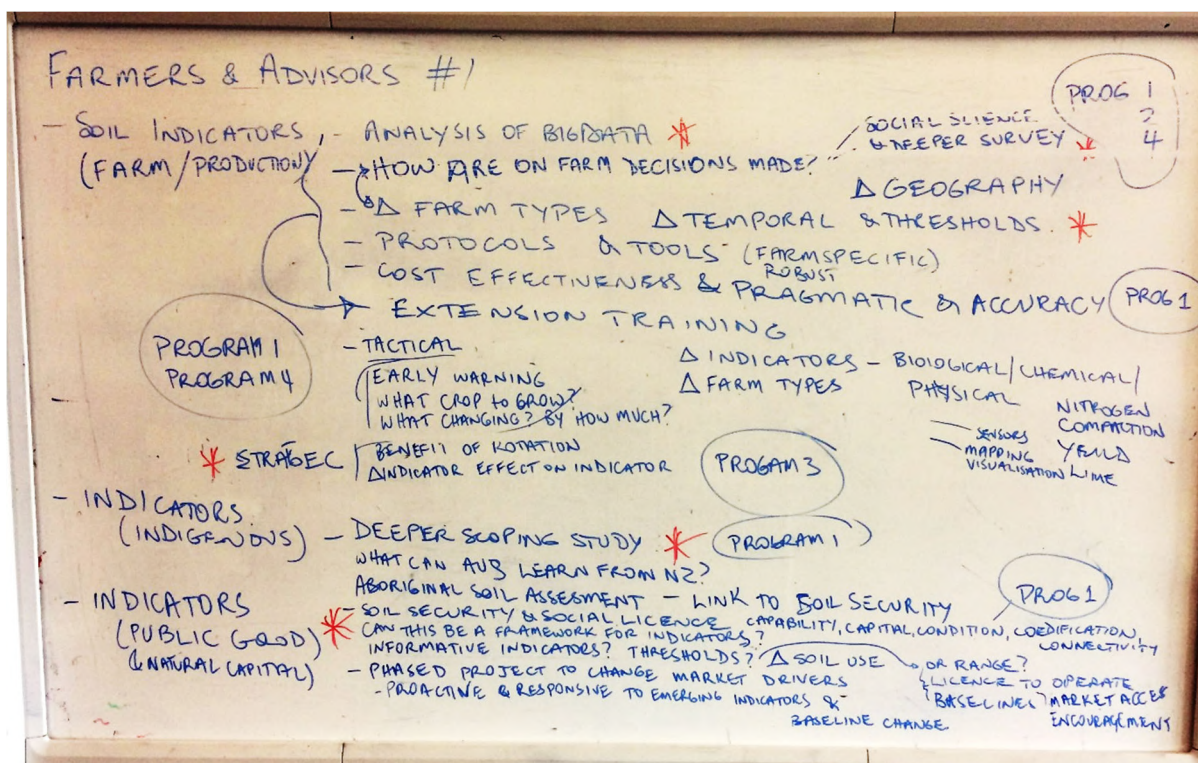 FARMERS & ADVISORS #1
PROG 1
2
4
- SOIL INDICATORS, - ANALYSIS OF BIGDATA *
(FARM/PRODUCTION)
SOCIAL SCIENCE
& DEEPER SURVEY *
- HOW ARE ON FARM DECISIONS MADE?
Δ GEOGRAPHY
- Δ FARM TYPES Δ TEMPORAL & THRESHOLDS. *
- PROTOCOLS & TOOLS (FARMSPECIFIC)
ROBUST
- COST EFFECTIVENESS & PRAGMATIC & ACCURACY PROG 1
EXTENSION TRAINING
PROGRAM 1
PROGRAM 4
- TACTICAL
EARLY WARNING
WHAT CROP TO GROW?
WHAT CHANGING? BY HOW MUCH?
Δ INDICATORS - BIOLOGICAL/CHEMICAL/
Δ FARM TYPES PHYSICAL
NITROGEN
COMPACTION
YEILD
LIME
- SENSORS
- MAPPING
VISUALISATION
* STRATEGIC BENEFIT OF ROTATION
Δ INDICATOR EFFECT ON INDICATOR
PROGAM 3
- INDICATORS
(INDIGENOUS) - DEEPER SCOPING STUDY * PROGRAM 1
WHAT CAN AUS LEARN FROM NZ?
ABORIGINAL SOIL ASSESMENT - LINK TO SOIL SECURITY
PROG 1
- INDICATORS
(PUBLIC GOOD) *
(& NATURAL CAPITAL)
- SOIL SECURITY & SOCIAL LICENCE CAPABILITY, CAPITAL, CONDITION, COEDIFICATION,
CONNECTIVITY
CAN THIS BE A FRAMEWORK FOR INDICATORS?
INFORMATIVE INDICATORS? THRESHOLDS? Δ SOIL USE OR RANGE?
LICENCE TO OPERATE
BASELINES MARKET ACCESS
ENCOURAGEMENT
- PHASED PROJECT TO CHANGE MARKET DRIVERS
- PROACTIVE & RESPONSIVE TO EMERGING INDICATORS &
BASELINE CHANGE